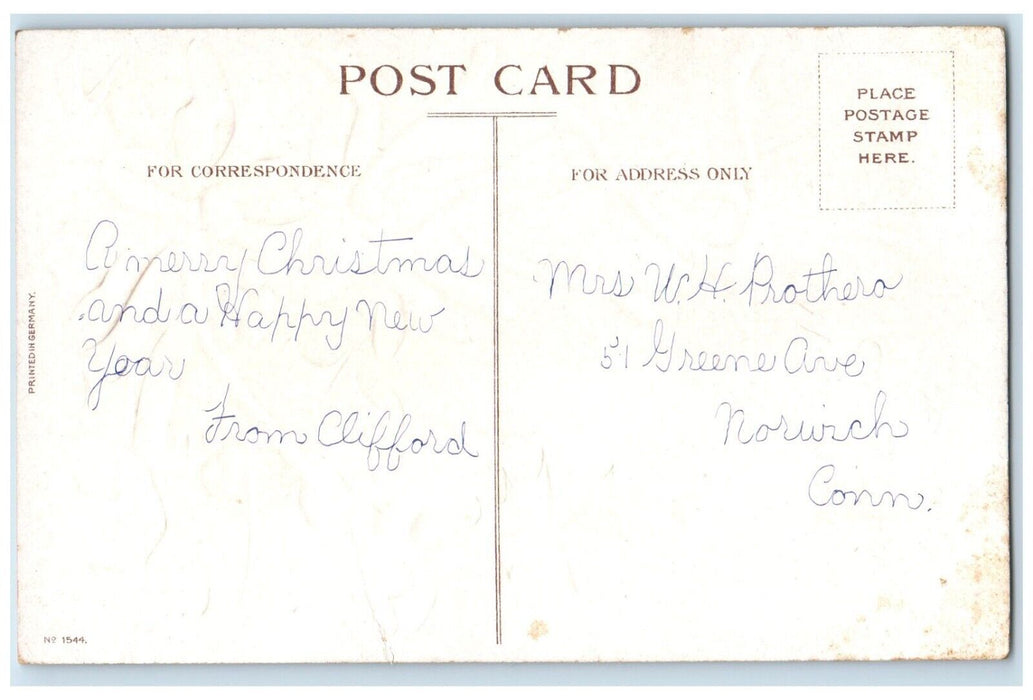 POST CARD
PLACE
POSTAGE
STAMP
HERE.
FOR CORRESPONDENCE
FOR ADDRESS ONLY
A merry Christmas
and a Happy New
Year
From Clifford
Mrs W. H. Prothero
51 Greene Ave
Norwich
Conn.
PRINTED IN GERMANY.
Nº 1544.